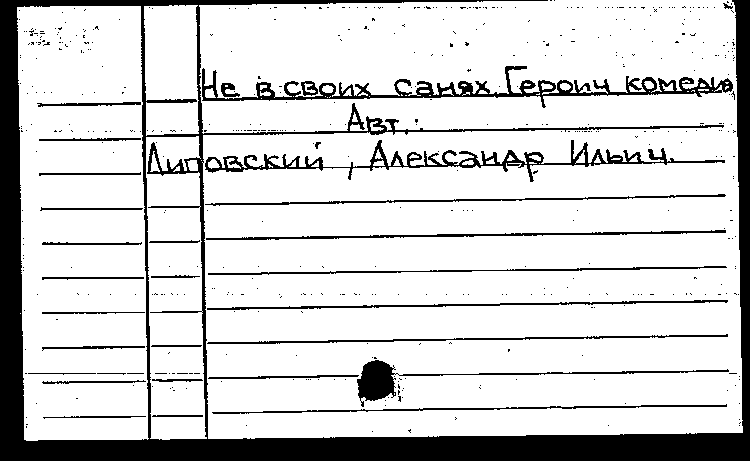 Не в своих санях. Героич комедия
Авт.:
Липовский, Александр Ильич.